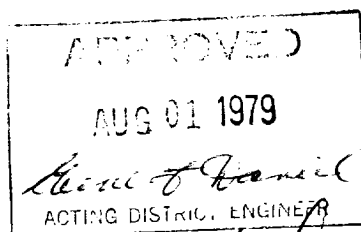 APPROVED
AUG 01 1979
ACTING DISTRICT ENGINEER